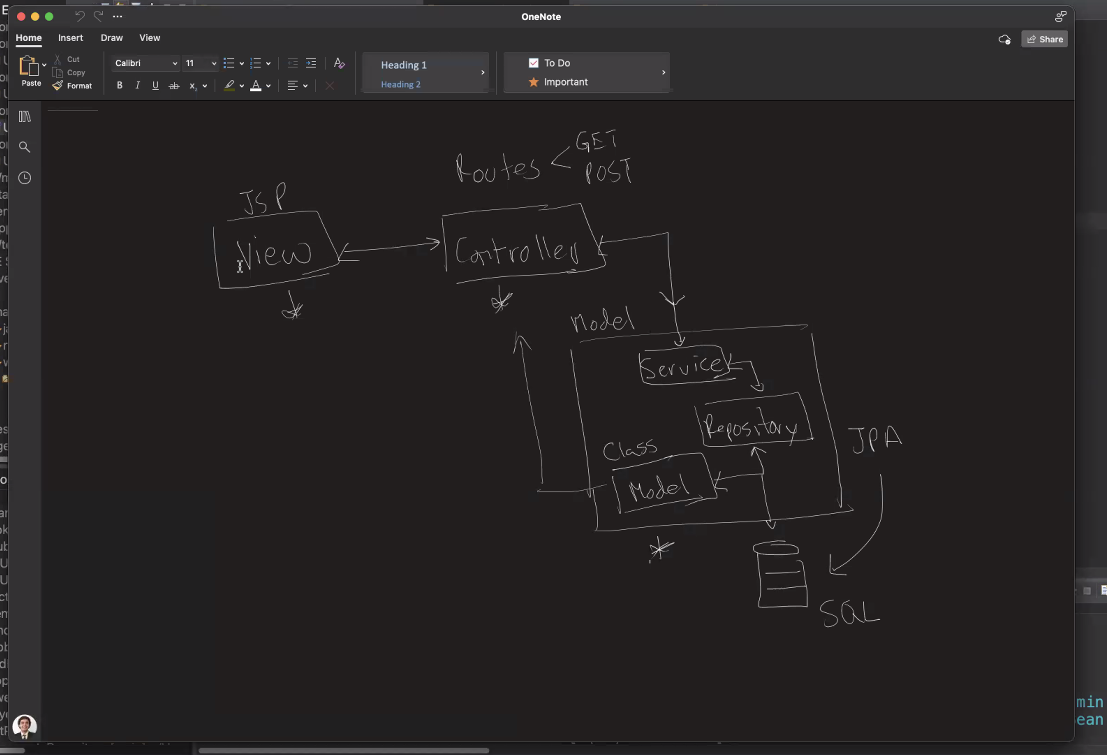 OneNote
Home Insert Draw View
Share
Paste
Cut
Copy
Format
Calibri 11
B I U ab x A
Heading 1
Heading 2
To Do
Important
Routes < GET
POST
JSP
View
Controller
Model
Service
Repository
Class
Model
JPA
SQL
min
ean